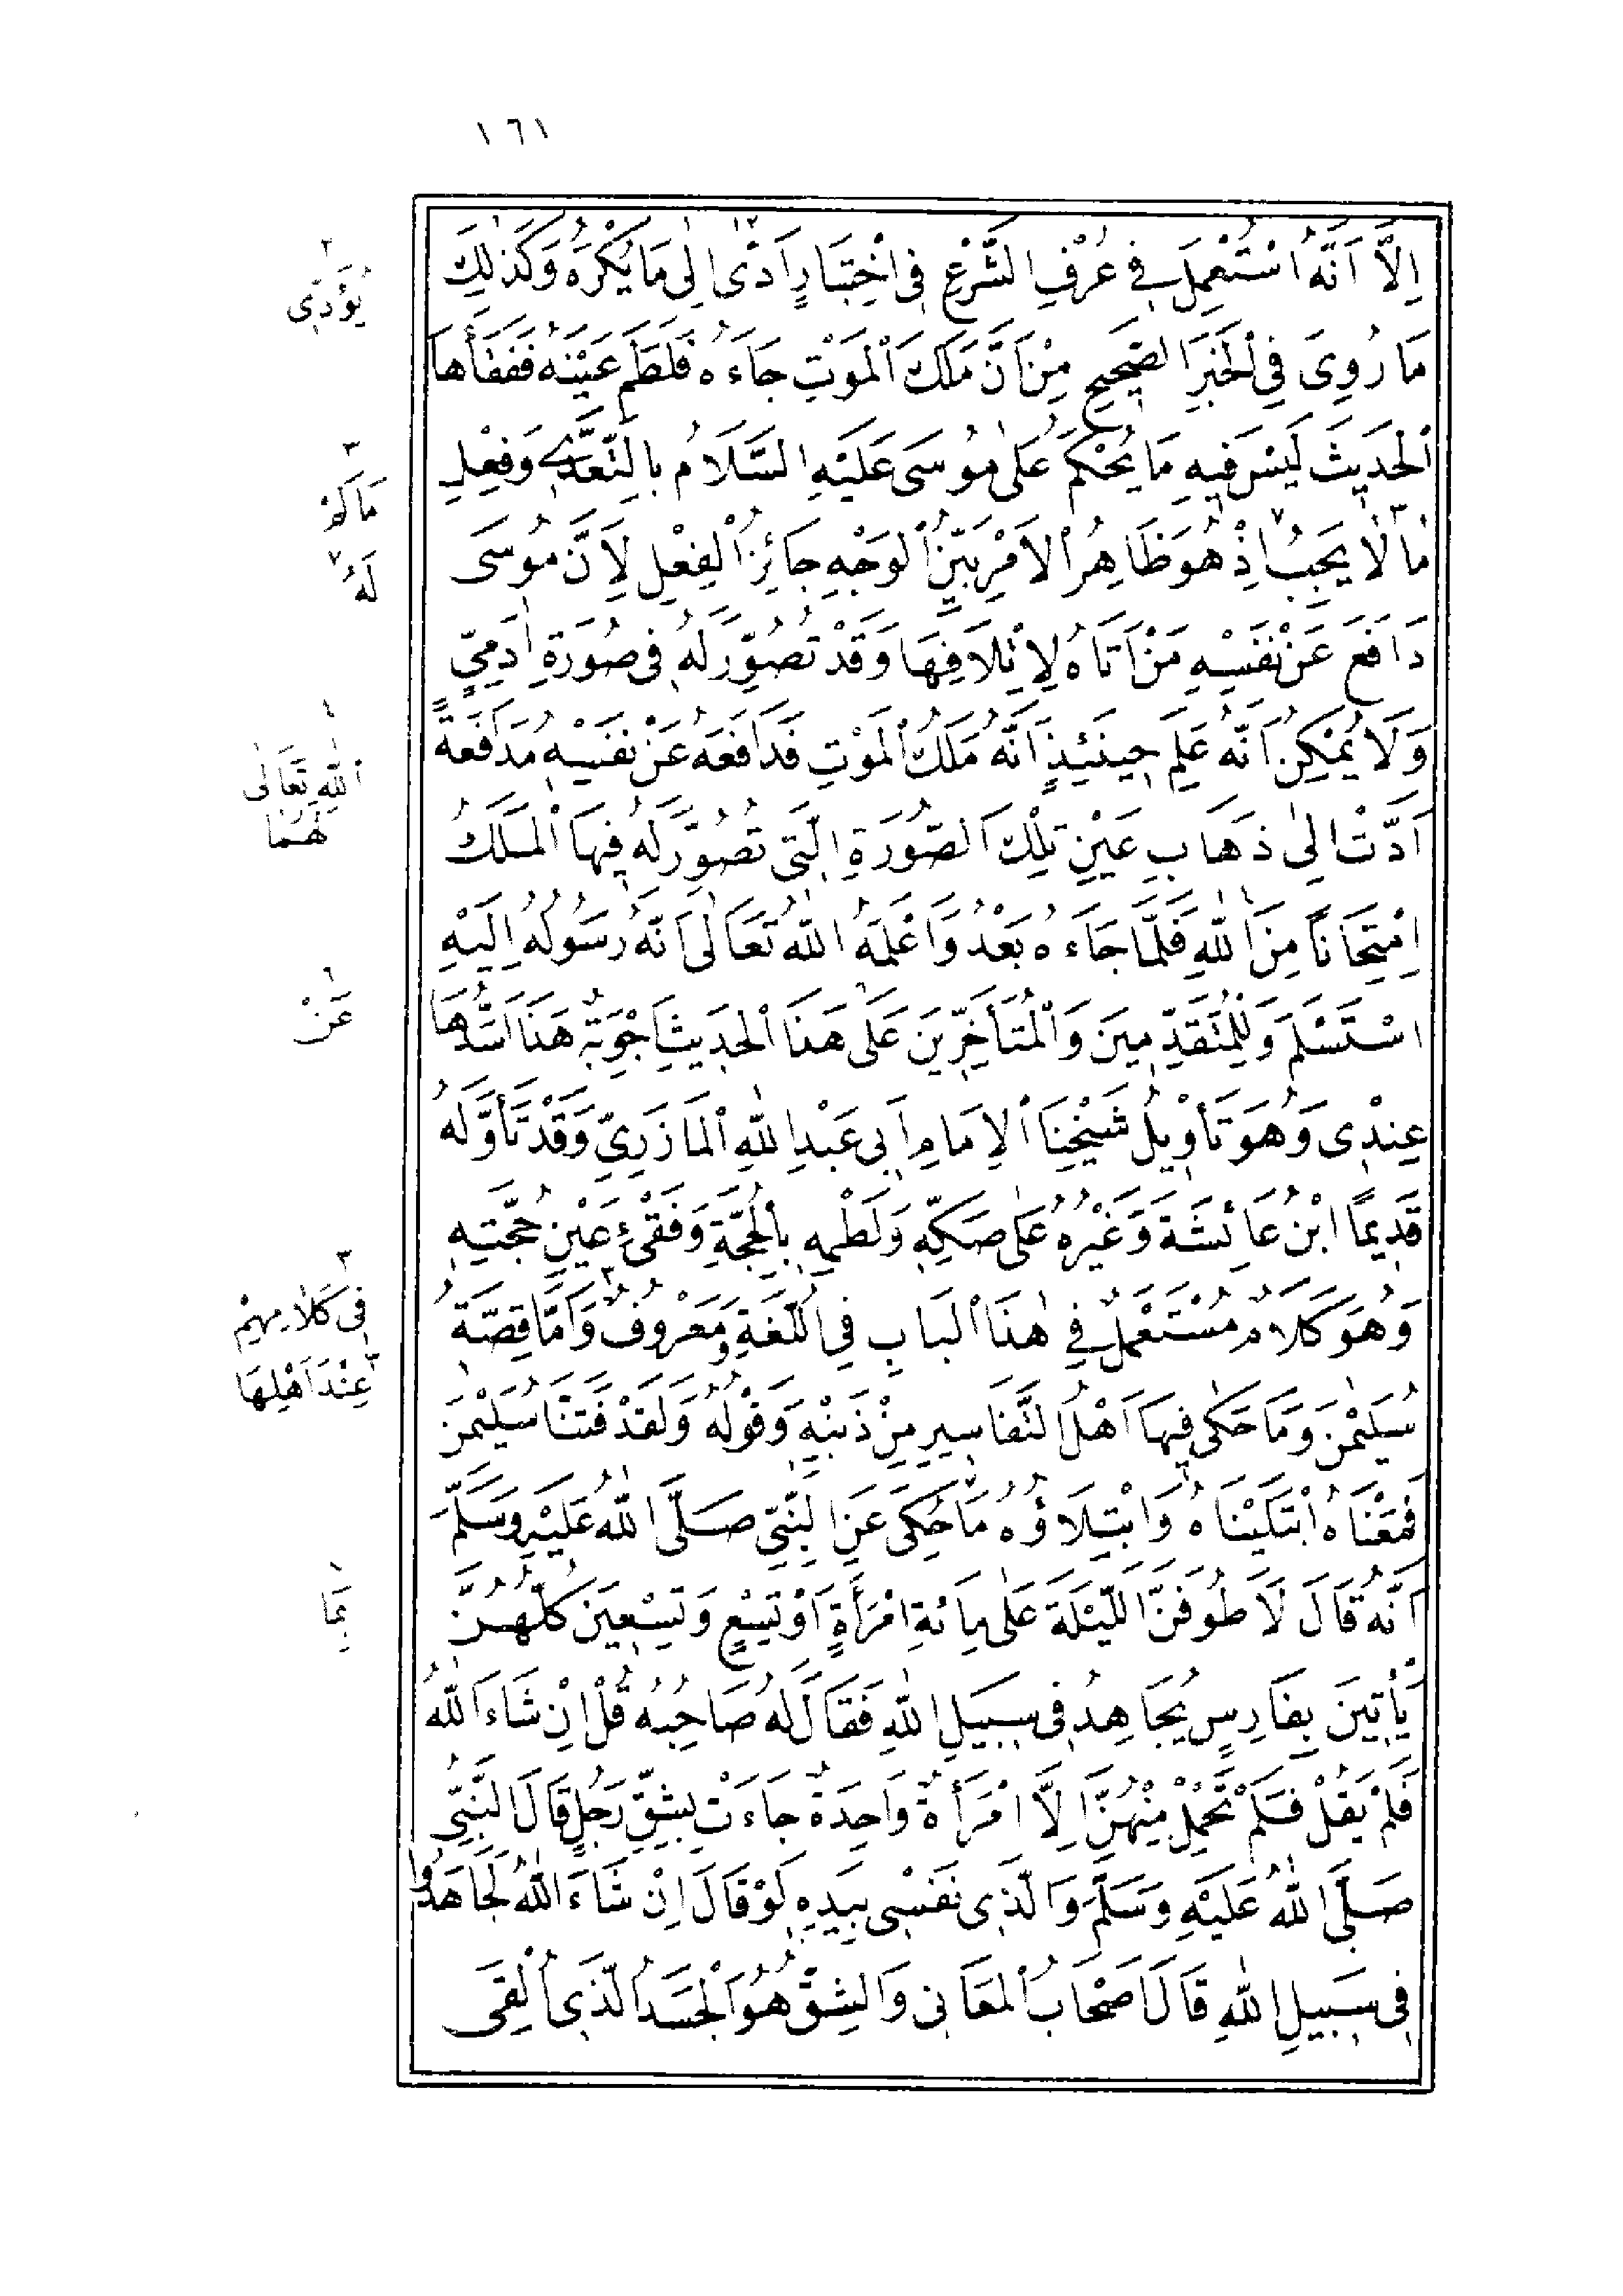 ١٦١
اِلَّا اَنَّهُ اسْتُعْمِلَ فِي عُرْفِ الشَّرْعِ فِي اخْتِبَارٍ اَدّٰى اِلٰى مَا يُكْرَهُ وَكَذٰلِكَ
مَا رُوِىَ فِي الْخَبَرِ الصَّحِيحِ مِنْ اَنَّ مَلَكَ الْمَوْتِ جَاءَهُ فَلَطَمَ عَيْنَهُ فَفَقَأَهَا
الْحَدِيثَ لَيْسَ فِيهِ مَا يُحْكَمُ عَلٰى مُوسَى عَلَيْهِ السَّلَامُ بِالتَّعَدِّي وَفِعْلِ
مَا لَا يَجِبُ اِذْ هُوَ ظَاهِرُ الْاَمْرِ بَيِّنُ الْوَجْهِ جَائِزُ الْفِعْلِ لِاَنَّ مُوسَى
دَافَعَ عَنْ نَفْسِهِ مَنْ اَتَاهُ لِاِتْلَافِهَا وَقَدْ تُصُوِّرَ لَهُ فِي صُورَةِ اٰدَمِيٍّ
وَلَا يُمْكِنُ اَنَّهُ عَلِمَ حِينَئِذٍ اَنَّهُ مَلَكُ الْمَوْتِ فَدَافَعَهُ عَنْ نَفْسِهِ مُدَافَعَةً
اَدَّتْ اِلٰى ذَهَابِ عَيْنِ تِلْكَ الصُّورَةِ الَّتِي تُصُوِّرَ لَهُ فِيهَا الْمَلَكُ
اِمْتِحَانًا مِنَ اللّٰهِ فَلَمَّا جَاءَهُ بَعْدُ وَاَعْلَمَهُ اللّٰهُ تَعَالٰى اَنَّهُ رَسُولُهُ اِلَيْهِ
اسْتَسْلَمَ وَلِلْمُتَقَدِّمِينَ وَالْمُتَأَخِّرِينَ عَلٰى هَذَا الْحَدِيثِ اَجْوِبَةٌ هَذَا اَسَدُّهَا
عِنْدِى وَهُوَ تَأْوِيلُ شَيْخِنَا الْاِمَامِ اَبِى عَبْدِ اللّٰهِ الْمَازَرِيِّ وَقَدْ تَأَوَّلَهُ
قَدِيمًا ابْنُ عَائِشَةَ وَغَيْرُهُ عَلٰى صَكِّهِ وَلَطْمِهِ بِالْحُجَّةِ وَفَقْءِ عَيْنِ حُجَّتِهِ
وَهُوَ كَلَامٌ مُسْتَعْمَلٌ فِي هٰذَا الْبَابِ فِي اللُّغَةِ وَمَعْرُوفٌ وَاَمَّا قِصَّةُ
سُلَيْمٰنَ وَمَا حَكٰى فِيهَا اَهْلُ التَّفَاسِيرِ مِنْ ذَنْبِهِ وَقَوْلُهُ وَلَقَدْ فَتَنَّا سُلَيْمٰنَ
فَمَعْنَاهُ ابْتَلَيْنَاهُ وَابْتِلَاؤُهُ مَا حُكِىَ عَنِ النَّبِيِّ صَلَّى اللّٰهُ عَلَيْهِ وَسَلَّمَ
اَنَّهُ قَالَ لَاَطُوفَنَّ اللَّيْلَةَ عَلٰى مِائَةِ امْرَأَةٍ اَوْ تِسْعٍ وَتِسْعِينَ كُلُّهُنَّ
يَأْتِينَ بِفَارِسٍ يُجَاهِدُ فِي سَبِيلِ اللّٰهِ فَقَالَ لَهُ صَاحِبُهُ قُلْ اِنْ شَاءَ اللّٰهُ
فَلَمْ يَقُلْ فَلَمْ تَحْمِلْ مِنْهُنَّ اِلَّا امْرَأَةٌ وَاحِدَةٌ جَاءَتْ بِشِقِّ رَجُلٍ قَالَ النَّبِيُّ
صَلَّى اللّٰهُ عَلَيْهِ وَسَلَّمَ وَالَّذِى نَفْسِى بِيَدِهِ لَوْ قَالَ اِنْ شَاءَ اللّٰهُ لَجَاهَدُوا
فِي سَبِيلِ اللّٰهِ قَالَ اَصْحَابُ الْمَعَانِى وَالشِّقُّ هُوَ الْجَسَدُ الَّذِى اُلْقِىَ
٢
يُؤَدِّى
٣
٧
لَهُ
١
اللّٰهِ تَعَالٰى
لَهُمَا
٦
عَنْ
٣
فِي كَلَامِهِمْ
عِنْدَ اَهْلِهَا
١
بِمَا